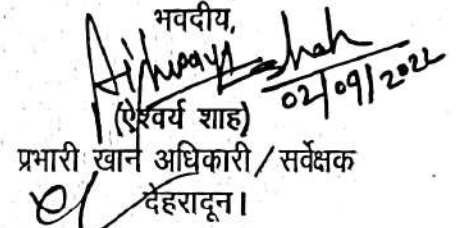 भवदीय,
Aishwarya Shah
02/09/2022
(ऐश्वर्य शाह)
प्रभारी खान अधिकारी / सर्वेक्षक
देहरादून।